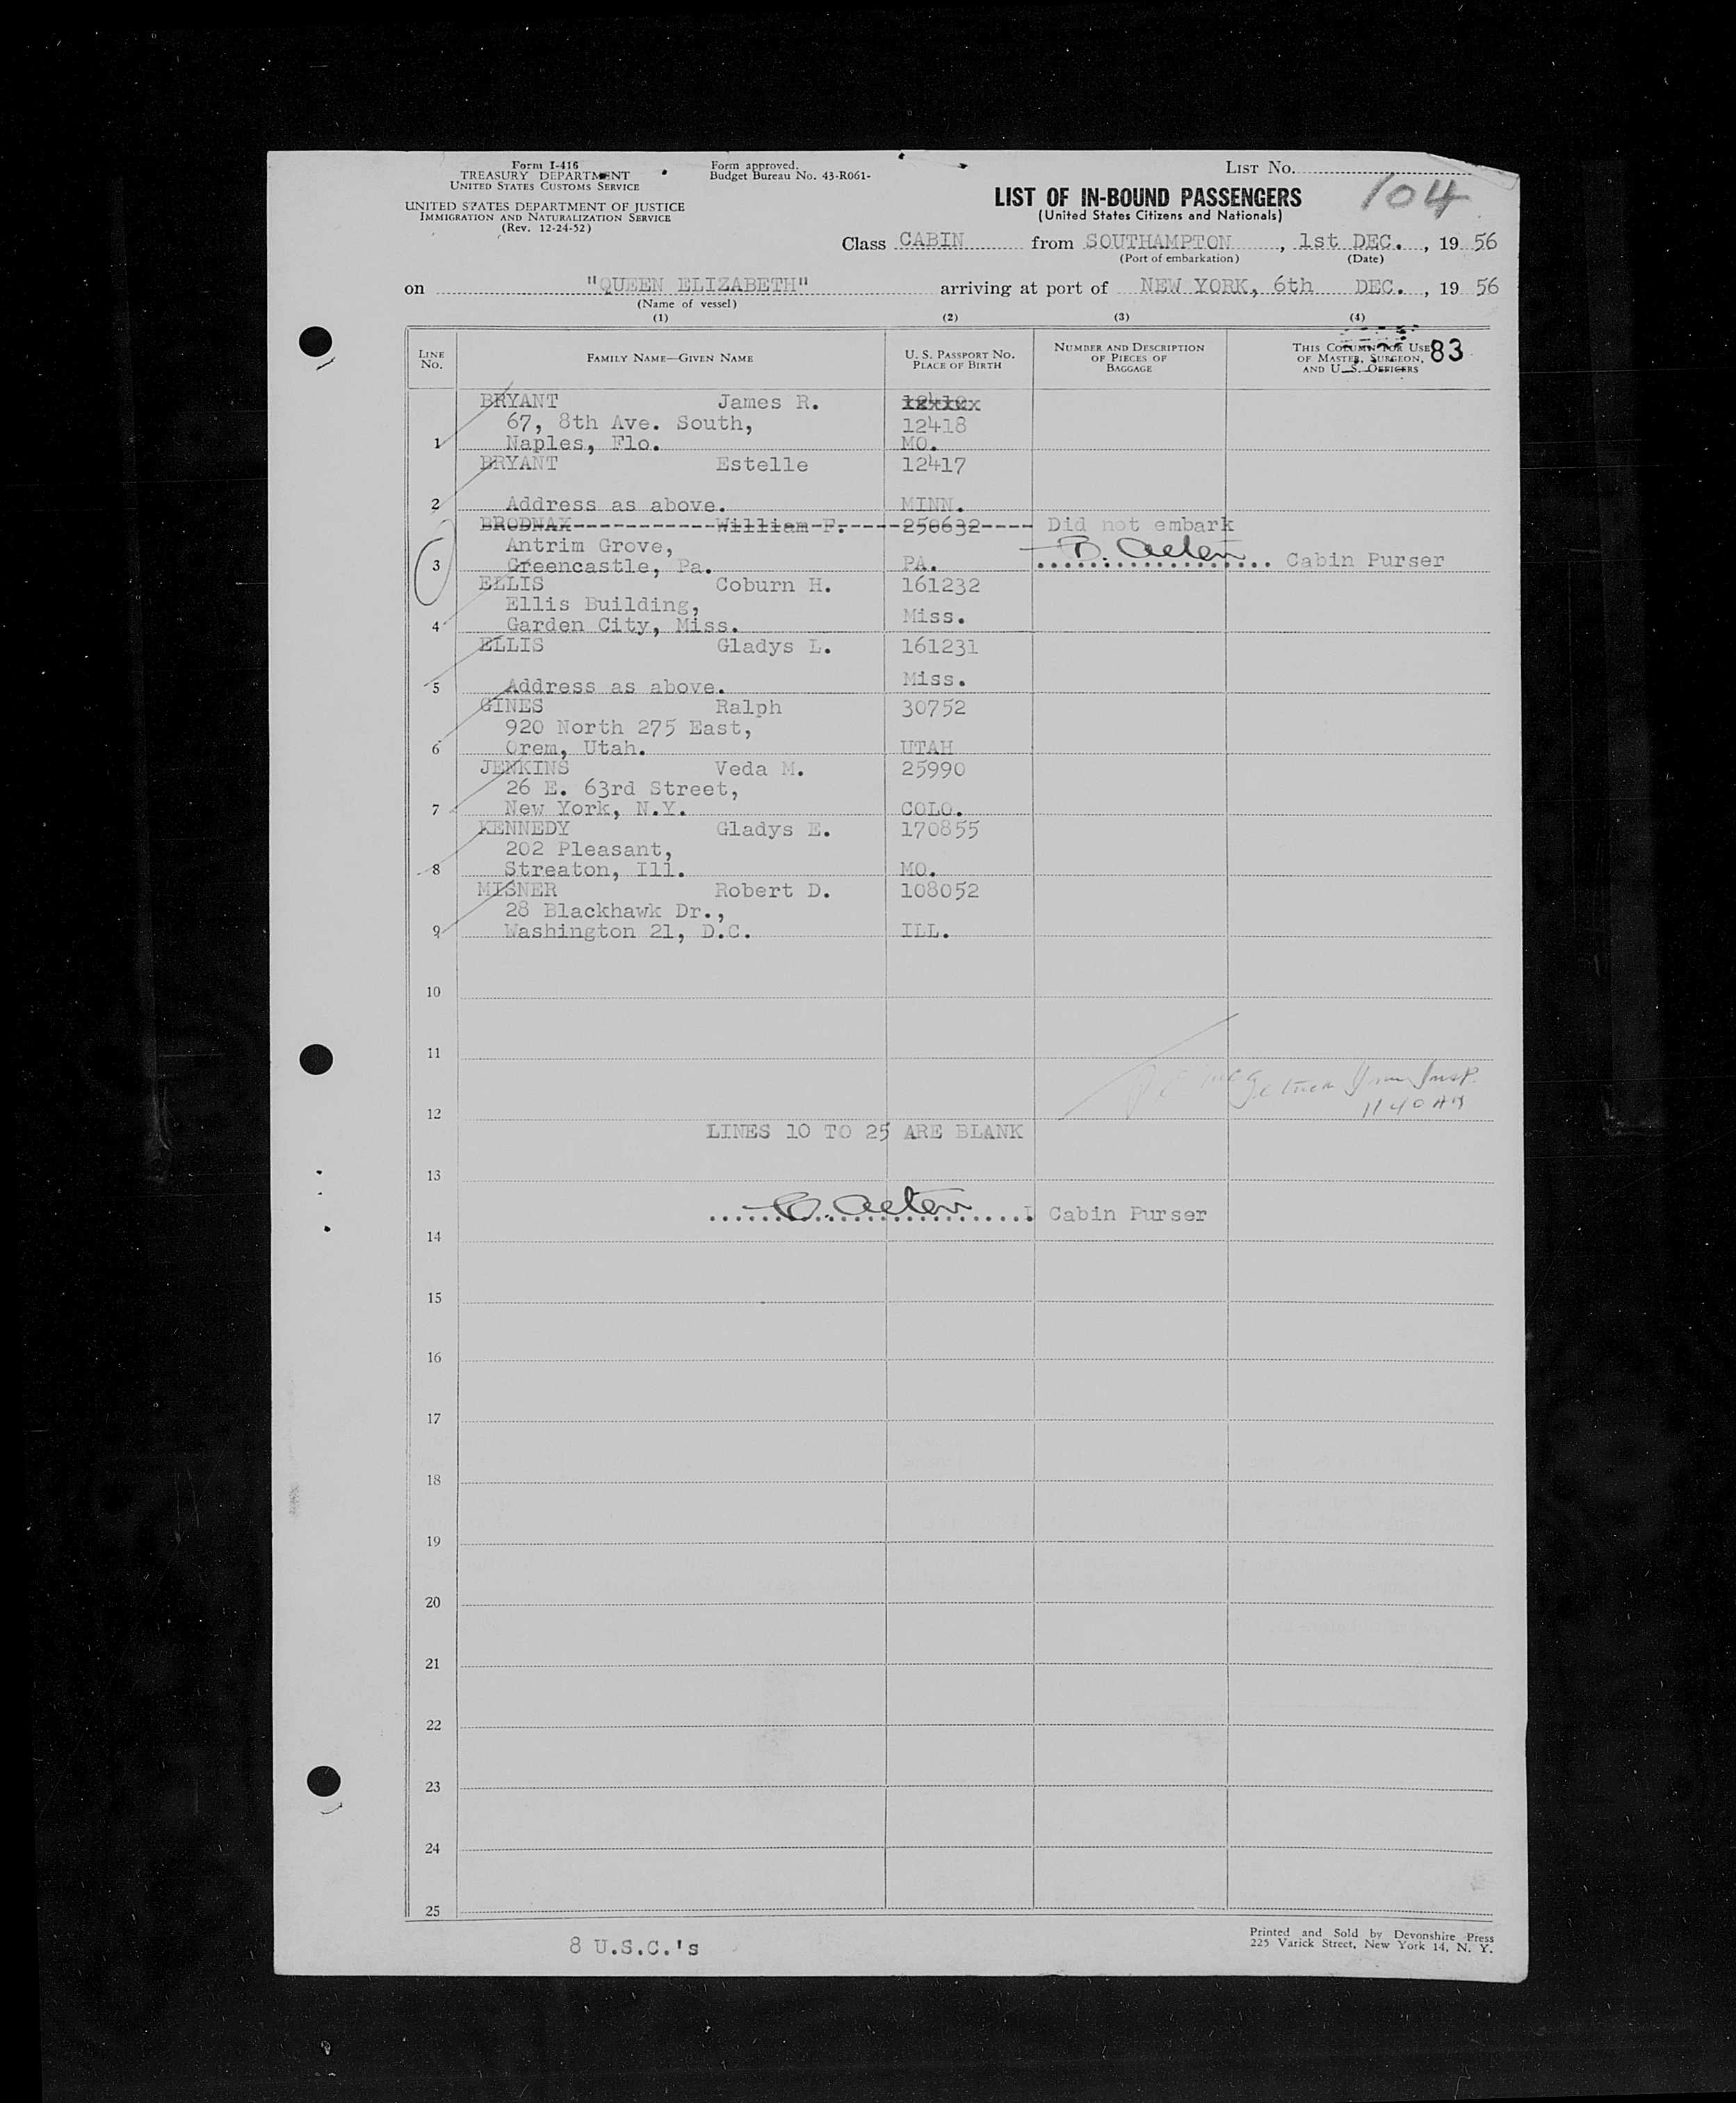 Form I-416
TREASURY DEPARTMENT
UNITED STATES CUSTOMS SERVICE
UNITED STATES DEPARTMENT OF JUSTICE
IMMIGRATION AND NATURALIZATION SERVICE
(Rev. 12-24-52)
Form approved.
Budget Bureau No. 43-R061-
LIST No.
104
LIST OF IN-BOUND PASSENGERS
(United States Citizens and Nationals)
Class CABIN from SOUTHAMPTON, 1st DEC., 19 56
(Port of embarkation) (Date)
on "QUEEN ELIZABETH" arriving at port of NEW YORK, 6th DEC., 19 56
(Name of vessel)
(1) (2) (3) (4)
LINE NO. FAMILY NAME—GIVEN NAME U. S. PASSPORT NO. PLACE OF BIRTH NUMBER AND DESCRIPTION OF PIECES OF BAGGAGE THIS COLUMN FOR USE OF MASTER, SURGEON, AND U. S. OFFICERS 83
BRYANT James R.
67, 8th Ave. South, 12418
1 Naples, Flo. MO.
BRYANT Estelle 12417
2 Address as above. MINN.
BRODNAX William F. 250632 Did not embark
Antrim Grove,
3 Greencastle, Pa. PA. Cabin Purser
ELLIS Coburn H. 161232
Ellis Building, Miss.
4 Garden City, Miss.
ELLIS Gladys L. 161231
Miss.
5 Address as above.
GINES Ralph 30752
920 North 275 East,
6 Orem, Utah. UTAH
JENKINS Veda M. 25990
26 E. 63rd Street,
7 New York, N.Y. COLO.
KENNEDY Gladys E. 170855
202 Pleasant,
8 Streaton, Ill. MO.
MISNER Robert D. 108052
28 Blackhawk Dr.,
9 Washington 21, D.C. ILL.
10
11
1140 AM
12
LINES 10 TO 25 ARE BLANK
13
Cabin Purser
14
15
16
17
18
19
20
21
22
23
24
25
8 U.S.C.'s
Printed and Sold by Devonshire Press
225 Varick Street, New York 14, N. Y.